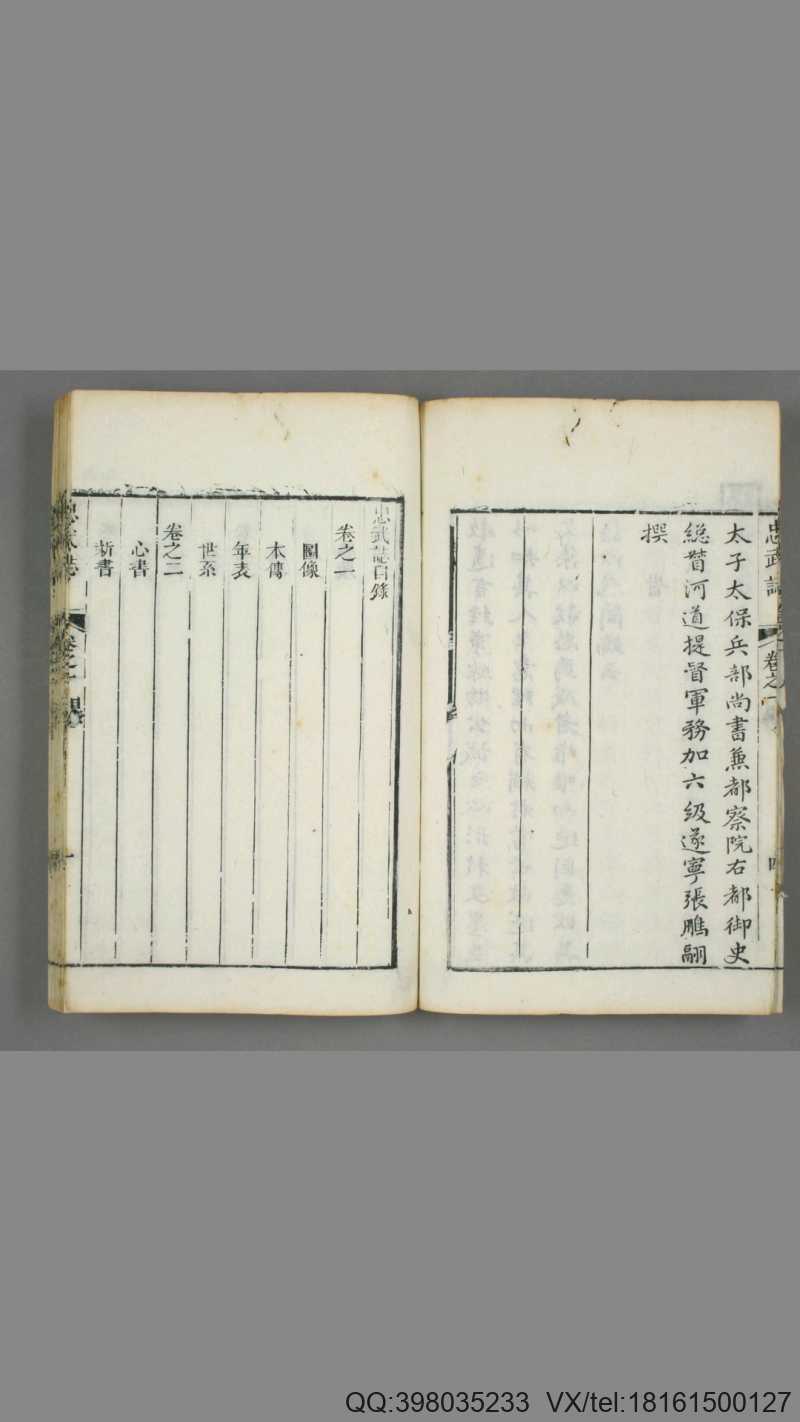 忠武誌
卷之一
四
太子太保兵部尚書兼都察院右都御史
總督河道提督軍務加六級遂寧張鵬翮
撰
忠武誌目錄
卷之一
圖像
本傳
年表
世系
卷之二
心書
新書
忠武誌
卷之
目
一
QQ:398035233 VX/tel:18161500127